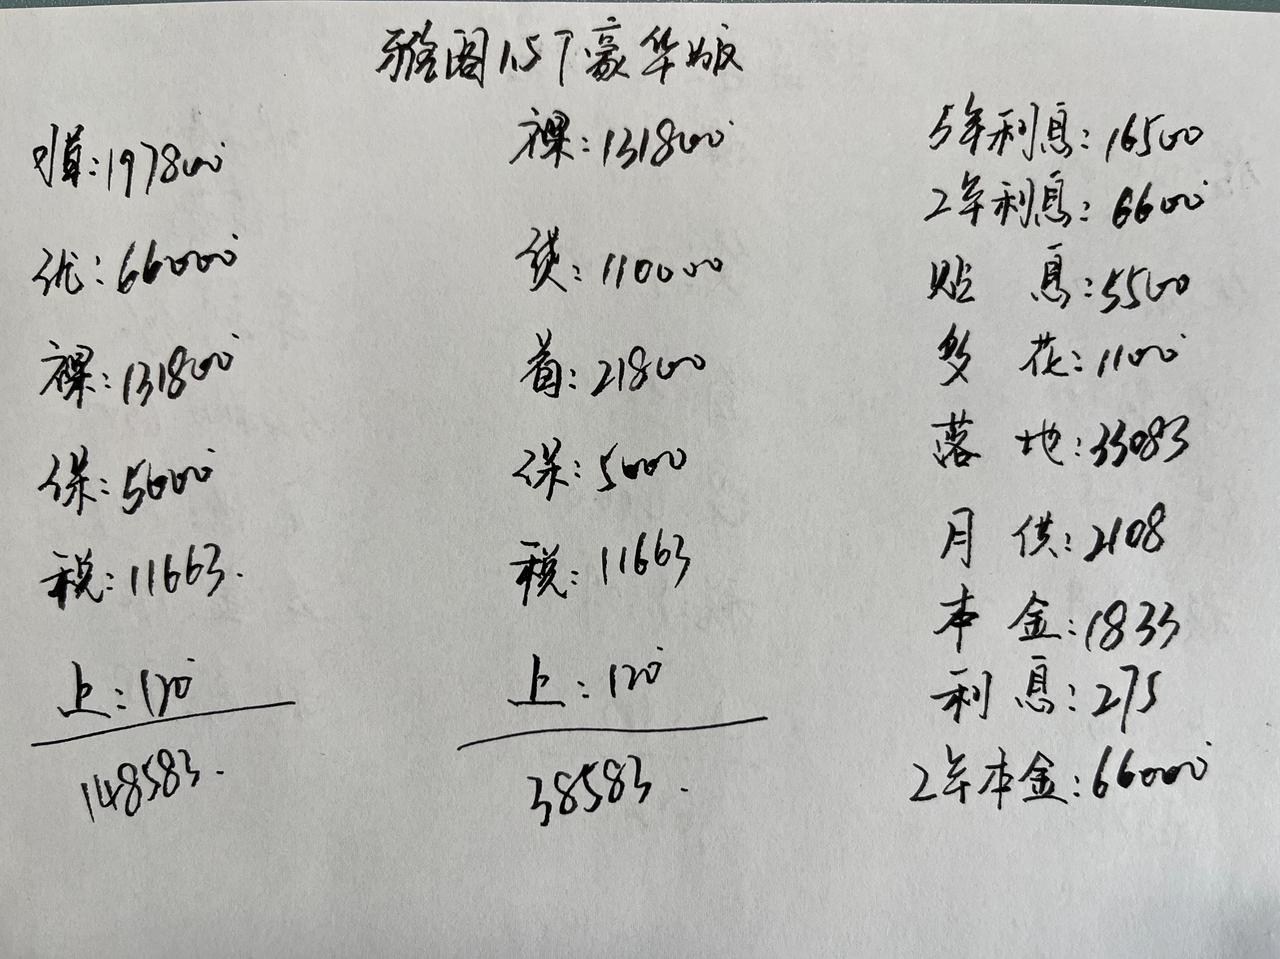 雅阁1.5T豪华版
指:197800
优:66000
裸:131800
保:5000
税:11663.
上:120
148583.
裸:131800
贷:110000
首:21800
保:5000
税:11663
上:120
38583.
5年利息:16500
2年利息:6600
贴 息:5500
多 花:1100
落 地:33083
月 供:2108
本 金:1833
利 息:275
2年本金:66000